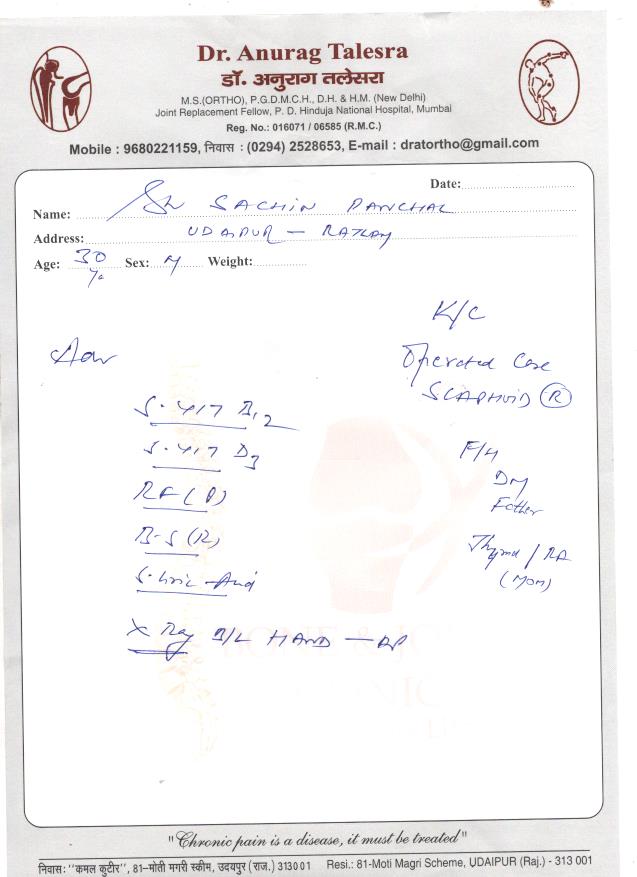 Dr. Anurag Talesra
डॉ. अनुराग तलेसरा
M.S.(ORTHO), P.G.D.M.C.H., D.H. & H.M. (New Delhi)
Joint Replacement Fellow, P. D. Hinduja National Hospital, Mumbai
Reg. No.: 016071 / 06585 (R.M.C.)
Mobile : 9680221159, निवास : (0294) 2528653, E-mail : dratortho@gmail.com
Date:
Name: SACHIN PANCHAL
Address: UDAIPUR – RATLAM
Age: 30 Sex: M Weight:
K/C
Adv
Operated Case
SCAPHOID (R)
S. Vit B12
S. Vit D3
F/H
DM
Father
RF (P)
B-S (R)
Thyroid / RA
(MOM)
S. Uric Acid
X Ray B/L HAND – AP
"Chronic pain is a disease, it must be treated"
निवास: "कमल कुटीर", 81–मोती मगरी स्कीम, उदयपुर (राज.) 313001 Resi.: 81-Moti Magri Scheme, UDAIPUR (Raj.) - 313 001